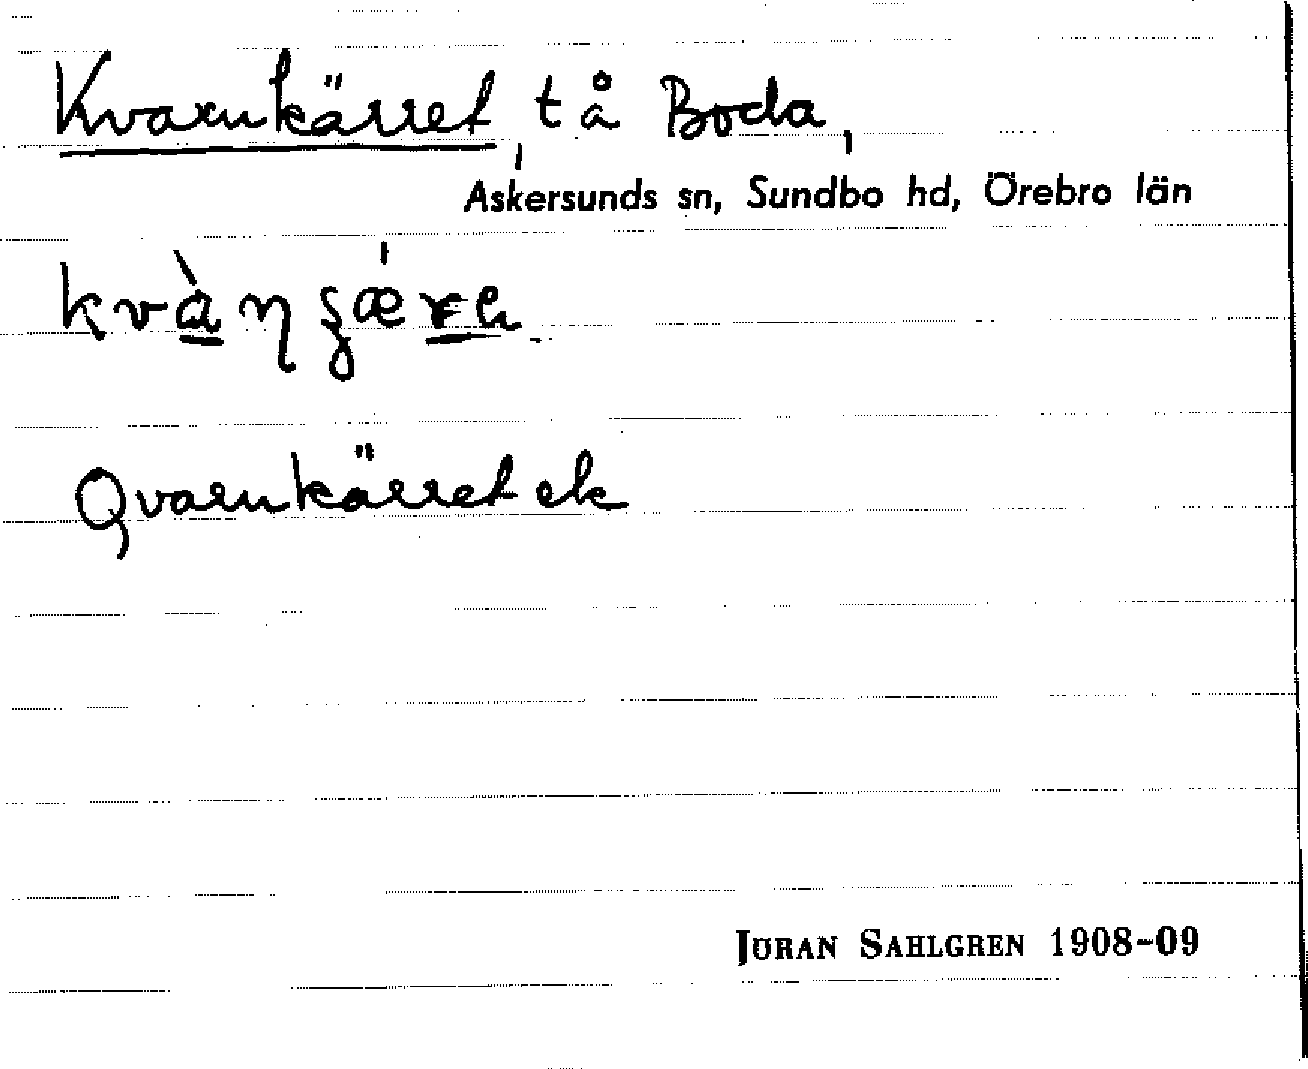 Kvarnkärret, tå Boda,
Askersunds sn, Sundbo hd, Örebro län
Qvarnkärret ek
JÖRAN SAHLGREN 1908-09